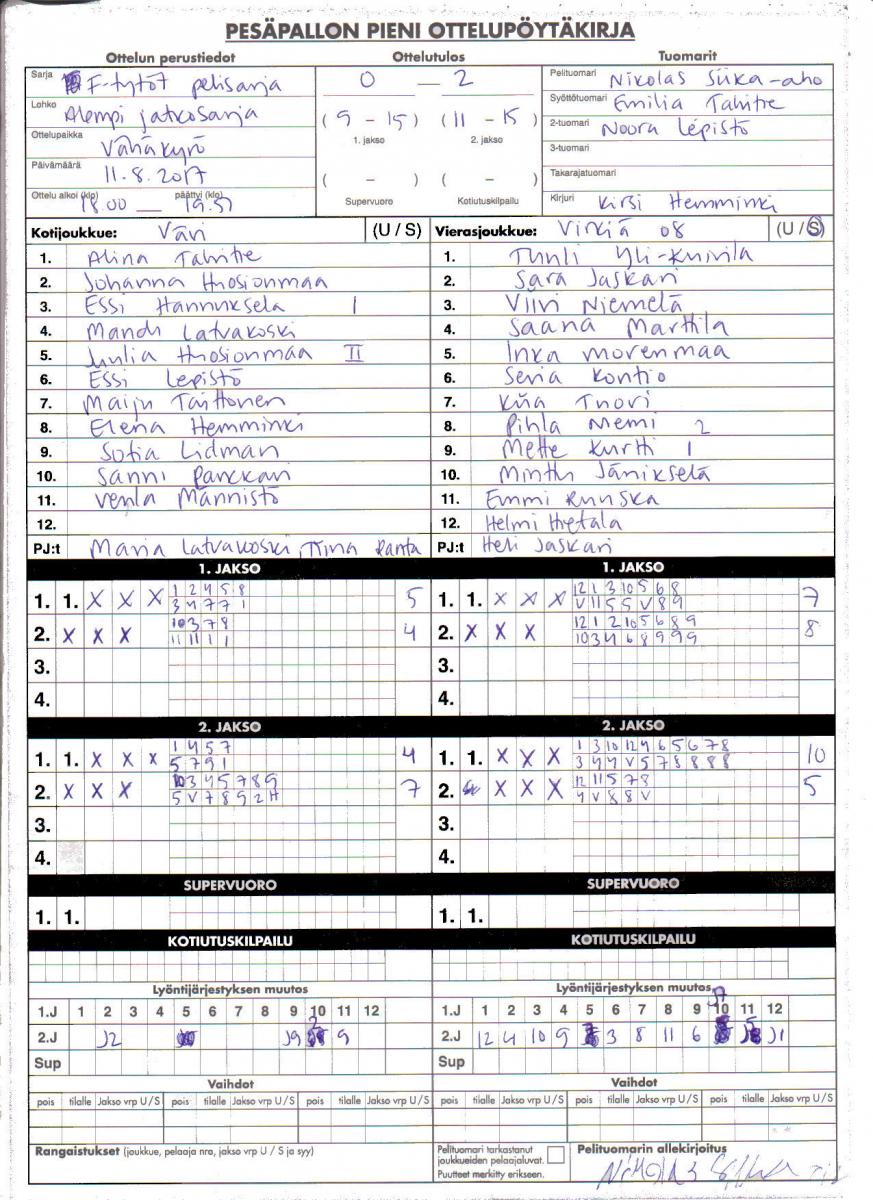 PESÄPALLON PIENI OTTELUPÖYTÄKIRJA
Ottelun perustiedot Ottelutulos Tuomarit
Sarja F-tytöt pelisarja 0 — 2 Pelituomari Nikolas Siika-aho
Lohko Alempi jatkosarja (9 - 15) (11 - 15) Syöttötuomari Emilia Tahitre
1. jakso 2. jakso
Ottelupaikka Vähäkyrö 2-tuomari Noora Lepistö
Päivämäärä 11.8.2017 ( - ) ( - ) 3-tuomari
Supervuoro Kotiutuskilpailu Takarajatuomari
Ottelu alkoi (klo) päättyi (klo) 18.00 — 19.51 Kirjuri Kirsi Hemminki
Kotijoukkue: Väri (U / S) Vierasjoukkue: Virkiä 08 (U / S)
1. Alina Tahitre 1. Tuuli Yli-Kuivila
2. Johanna Huosionmaa 2. Sara Jaskari
3. Essi Hannuksela I 3. Viivi Niemelä
4. Mandi Latvakoski 4. Saana Marttila
5. Julia Huosionmaa II 5. Inka Morenmaa
6. Essi Lepistö 6. Senia Kontio
7. Maiju Taittonen 7. Kiia Tuori
8. Elena Hemminki 8. Pihla Niemi 2
9. Sofia Lidman 9. Mette Kurtti 1
10. Sanni Panckari 10. Minttu Jänikselä
11. Venla Männistö 11. Emmi Ruuska
12. 12. Helmi Hietala
PJ:t Maria Latvakoski, Tiina Ranta PJ:t Heli Jaskari
1. JAKSO 1. JAKSO
1. 1. X X X 1 2 4 5 8 5 1. 1. X X X 12 1 3 10 5 6 8 7
3 4 7 7 1 V 11 5 5 V 8 9
2. X X X 10 3 7 8 4 2. X X X 12 1 2 10 5 6 8 9 8
11 11 1 1 10 3 4 6 8 9 9 9
3. 3.
4. 4.
2. JAKSO 2. JAKSO
1. 1. X X X 1 4 5 7 4 1. 1. X X X 1 3 10 12 4 6 5 6 7 8 10
5 7 9 1 3 4 4 V 5 7 8 8 8 8
2. X X X 10 3 4 5 7 8 9 7 2. X X X 12 11 5 7 8 5
5 V 7 8 9 2 H 4 V 8 8 V
3. 3.
4. 4.
SUPERVUORO SUPERVUORO
1. 1. 1. 1.
KOTIUTUSKILPAILU KOTIUTUSKILPAILU
Lyöntijärjestyksen muutos Lyöntijärjestyksen muutos
1.J 1 2 3 4 5 6 7 8 9 10 11 12 1.J 1 2 3 4 5 6 7 8 9 10 11 12
2.J J2 J9 2 9 2.J 12 4 10 9 3 8 11 6 J7 5 J1
Sup Sup
Vaihdot Vaihdot
pois tilalle Jakso vrp U / S pois tilalle Jakso vrp U / S pois tilalle Jakso vrp U / S pois tilalle Jakso vrp U / S pois tilalle Jakso vrp U / S pois tilalle Jakso vrp U / S
Rangaistukset (joukkue, pelaaja nro, jakso vrp U / S ja syy) Pelituomari tarkastanut joukkueiden pelaajaluvat. Pelituomarin allekirjoitus
Puutteet merkitty erikseen.